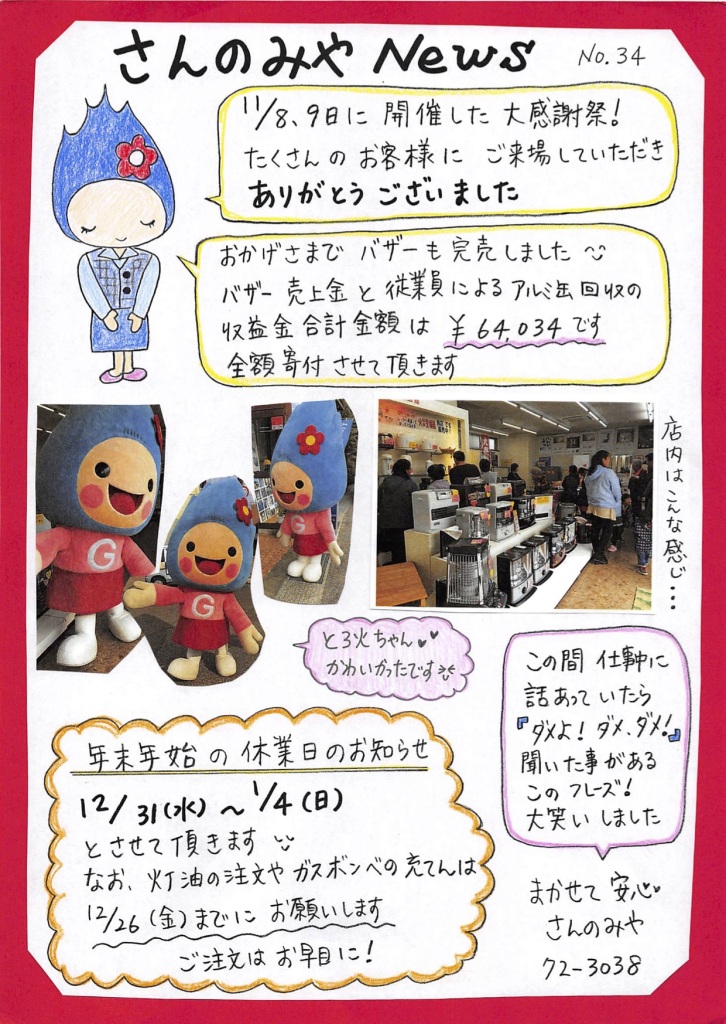 さんのみや News No.34
11/8、9日に 開催した 大感謝祭!
たくさんの お客様に ご来場していただき
ありがとう ございました
おかげさまで バザーも 完売しました
バザー 売上金と 従業員による アルミ缶 回収の
収益金 合計金額は ¥64,034です
全額寄付 させて頂きます
G
G
G
店内はこんな感じ…
とろ火ちゃん
かわいかったです
この間 仕事中に
話あっていたら
『ダメよ! ダメ、ダメ!』
聞いた事がある
このフレーズ!
大笑いしました
年末年始の休業日のお知らせ
12/31(水)~1/4(日)
とさせて頂きます
なお、灯油の注文や ガスボンベの充てんは
12/26(金)までに お願いします
ご注文は お早目に!
まかせて 安心
さんのみや
72-3038